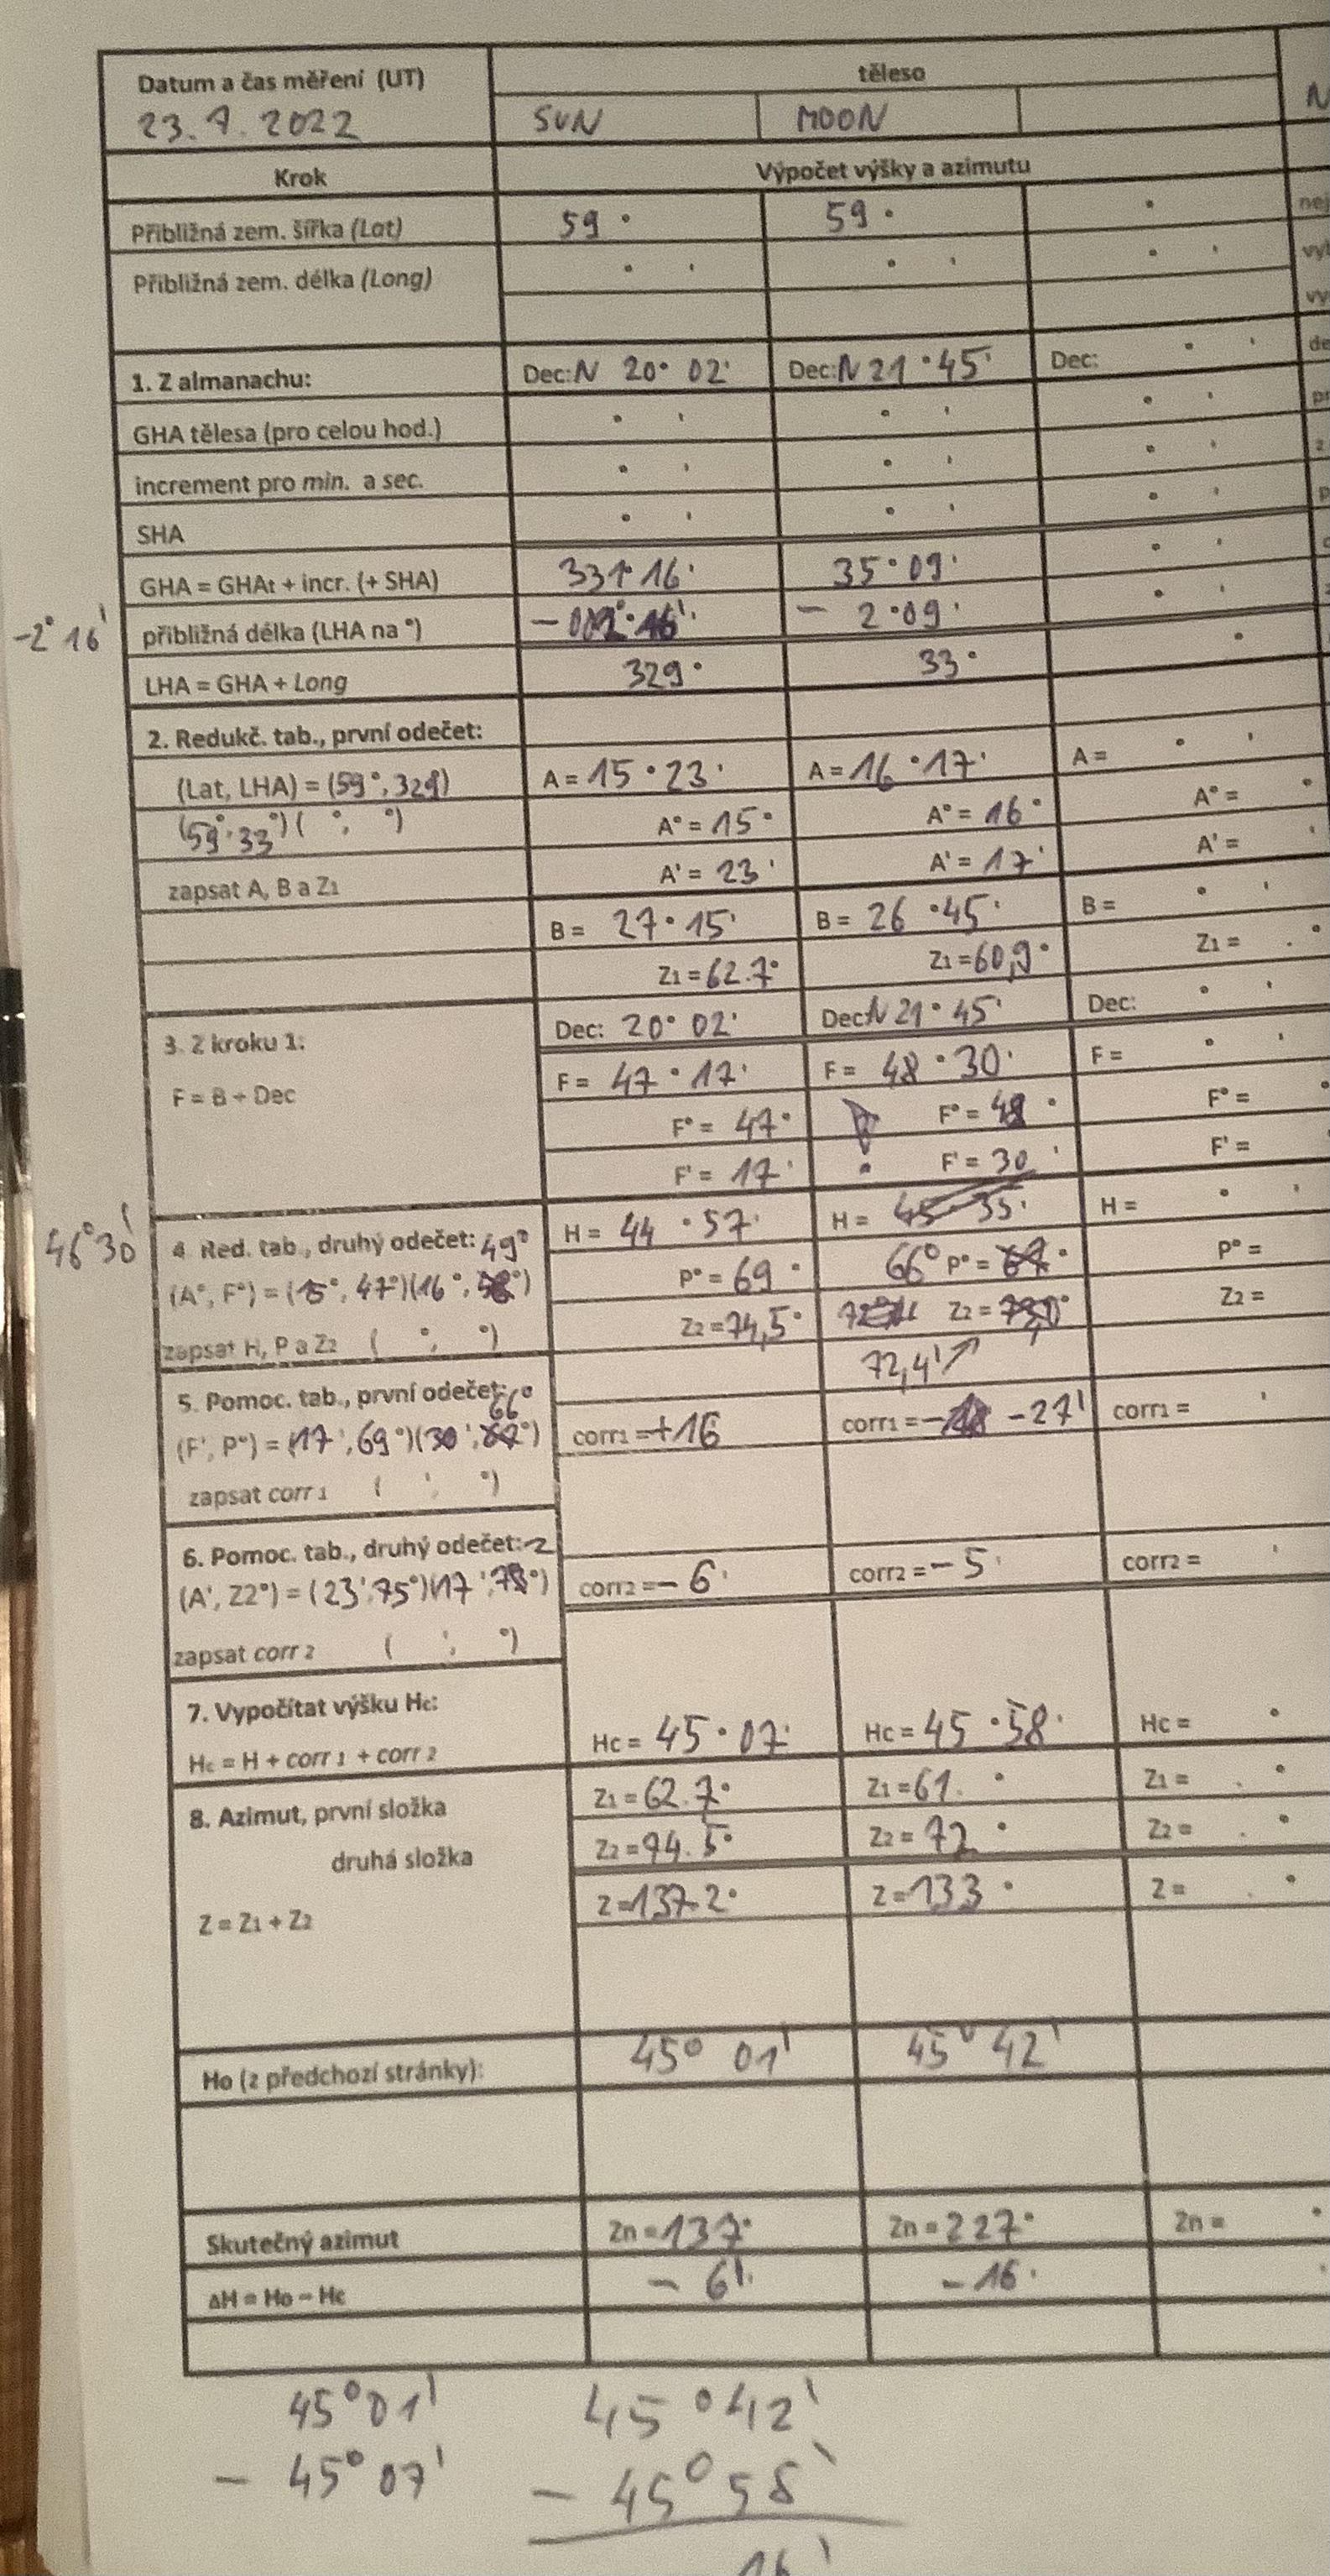 Datum a čas měření (UT) těleso
23.7.2022 SUN MOON
Krok Výpočet výšky a azimutu
Přibližná zem. šířka (Lat) 59° 59°
Přibližná zem. délka (Long)
1. Z almanachu: Dec: N 20° 02' Dec: N 21° 45' Dec:
GHA tělesa (pro celou hod.)
increment pro min. a sec.
SHA
GHA = GHAt + incr. (+ SHA) 331° 16' 35° 09'
-2° 16' přibližná délka (LHA na °) - 002° 16' - 2° 09'
LHA = GHA + Long 329° 33°
2. Redukč. tab., první odečet:
(Lat, LHA) = (59°, 329) A = 15° 23' A = 16° 17' A =
(59°, 33°) ( °, °) A° = 15° A° = 16° A° =
zapsat A, B a Z1 A' = 23' A' = 17' A' =
B = 27° 15' B = 26° 45' B =
Z1 = 62.7° Z1 = 60,9° Z1 =
3. Z kroku 1: Dec: 20° 02' Dec: N 21° 45' Dec:
F = B + Dec F = 47° 17' F = 48° 30' F =
F° = 47° F° = 48° F° =
F' = 17' F' = 30' F' =
46° 30' 4. Red. tab., druhý odečet: 49° H = 44° 57' H = 45 35' H =
(A°, F°) = (15°, 47°)(16°, °) P° = 69° 66° P° = 67° P° =
zapsat H, P a Z2 ( °, °) Z2 = 74,5° Z2 = Z2 =
72,4'
5. Pomoc. tab., první odečet: 66°
(F', P°) = (17', 69°)(30', 67°) corr1 = +16 corr1 = - -27' corr1 =
zapsat corr 1 ( ', °)
6. Pomoc. tab., druhý odečet: 2
(A', Z2°) = (23', 75°)(17', 73°) corr2 = - 6' corr2 = - 5' corr2 =
zapsat corr 2 ( ', °)
7. Vypočítat výšku Hc:
Hc = H + corr 1 + corr 2 Hc = 45° 07' Hc = 45° 58' Hc =
8. Azimut, první složka Z1 = 62.7° Z1 = 61. ° Z1 =
druhá složka Z2 = 74.5° Z2 = 72 ° Z2 =
Z = Z1 + Z2 Z = 137.2° Z = 133 ° Z =
Ho (z předchozí stránky): 45° 01' 45° 42'
Skutečný azimut Zn = 137° Zn = 227° Zn =
ΔH = Ho – Hc - 6' - 16'
45° 01' 45° 42'
- 45° 07' - 45° 58'
16'